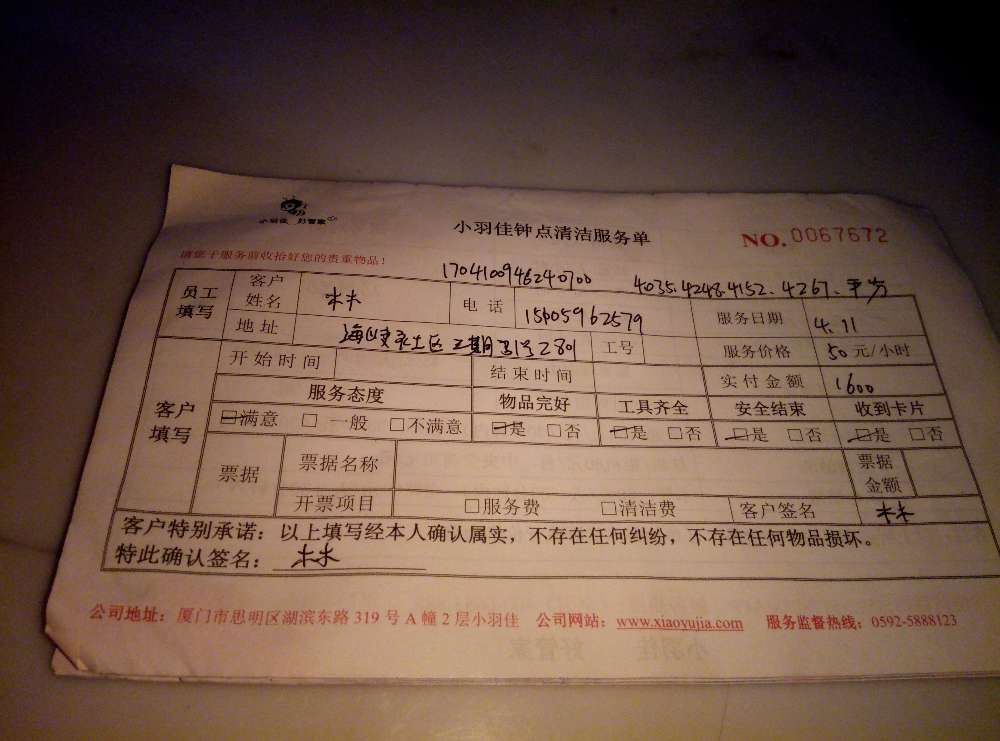 小羽佳 好管家
小羽佳钟点清洁服务单
NO. 0067672
请您于服务前收拾好您的贵重物品！
1704100946240700 4035.4248.4152.4267.平方
员工填写 客户姓名 林 电话 15605962579 服务日期 4.11
地址 海峡社区 期 号2801 工号 服务价格 50元/小时
客户填写 开始时间 结束时间 实付金额 1600
服务态度 物品完好 工具齐全 安全结束 收到卡片
□满意 □一般 □不满意 □是 □否 □是 □否 □是 □否 □是 □否
票据 票据名称 票据金额
开票项目 □服务费 □清洁费 客户签名 林
客户特别承诺：以上填写经本人确认属实，不存在任何纠纷，不存在任何物品损坏。
特此确认签名： 林
公司地址：厦门市思明区湖滨东路 319 号 A 幢 2 层小羽佳 公司网站：www.xiaoyujia.com 服务监督热线：0592-5888123